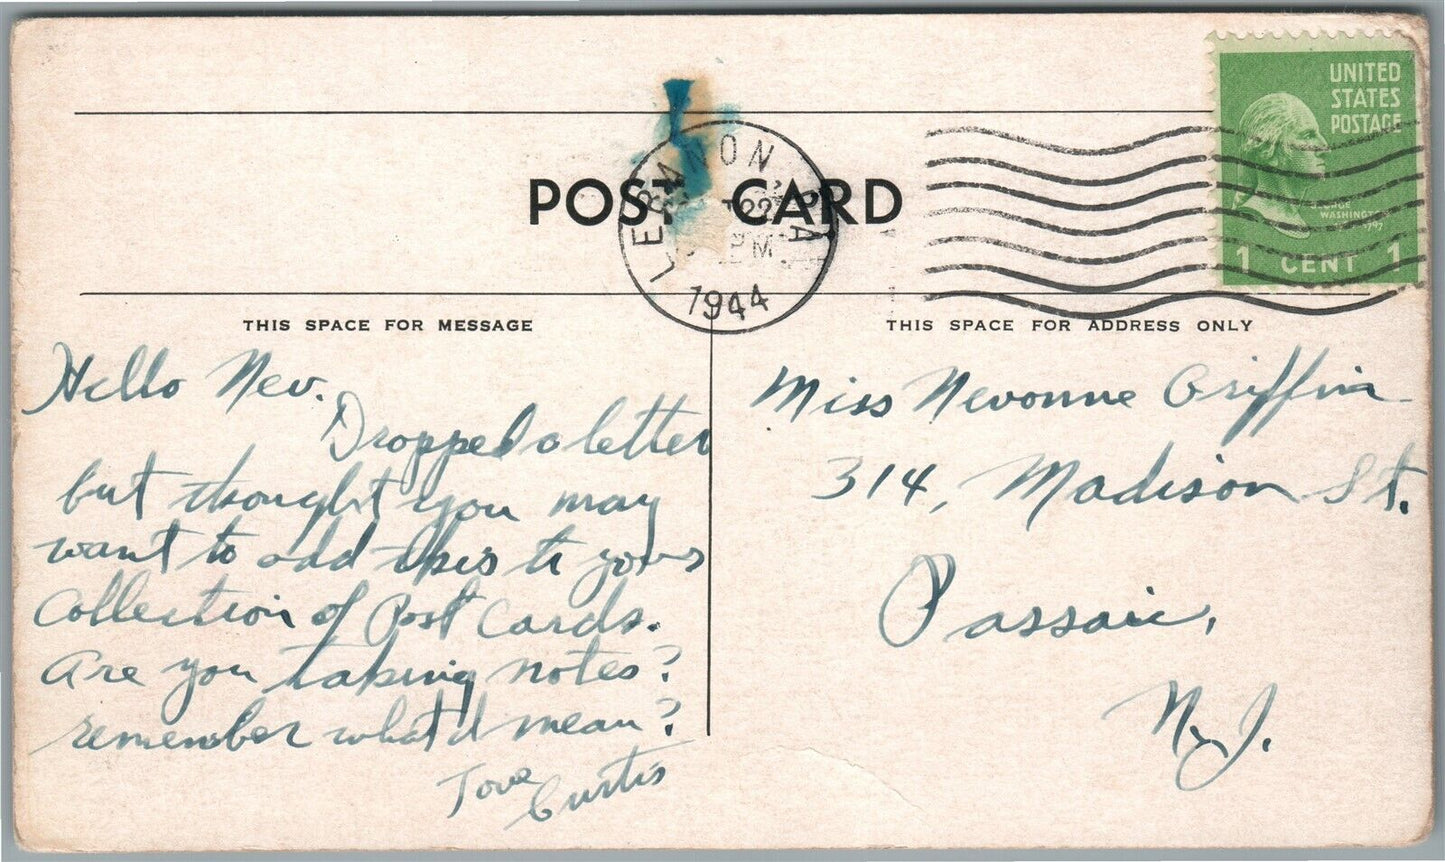 UNITED
STATES
POSTAGE
GEORGE
WASHINGTON
1 CENT 1
LEBANON PA.
22
PM
1944
POST CARD
THIS SPACE FOR MESSAGE
Hello Nev.
Dropped a letter
but thought you may
want to add this to your
Collection of Post Cards.
Are you taking notes?
remember what I mean?
Love
Curtis
THIS SPACE FOR ADDRESS ONLY
Miss Nevonne Griffin
314, Madison St.
Passaic,
N.J.